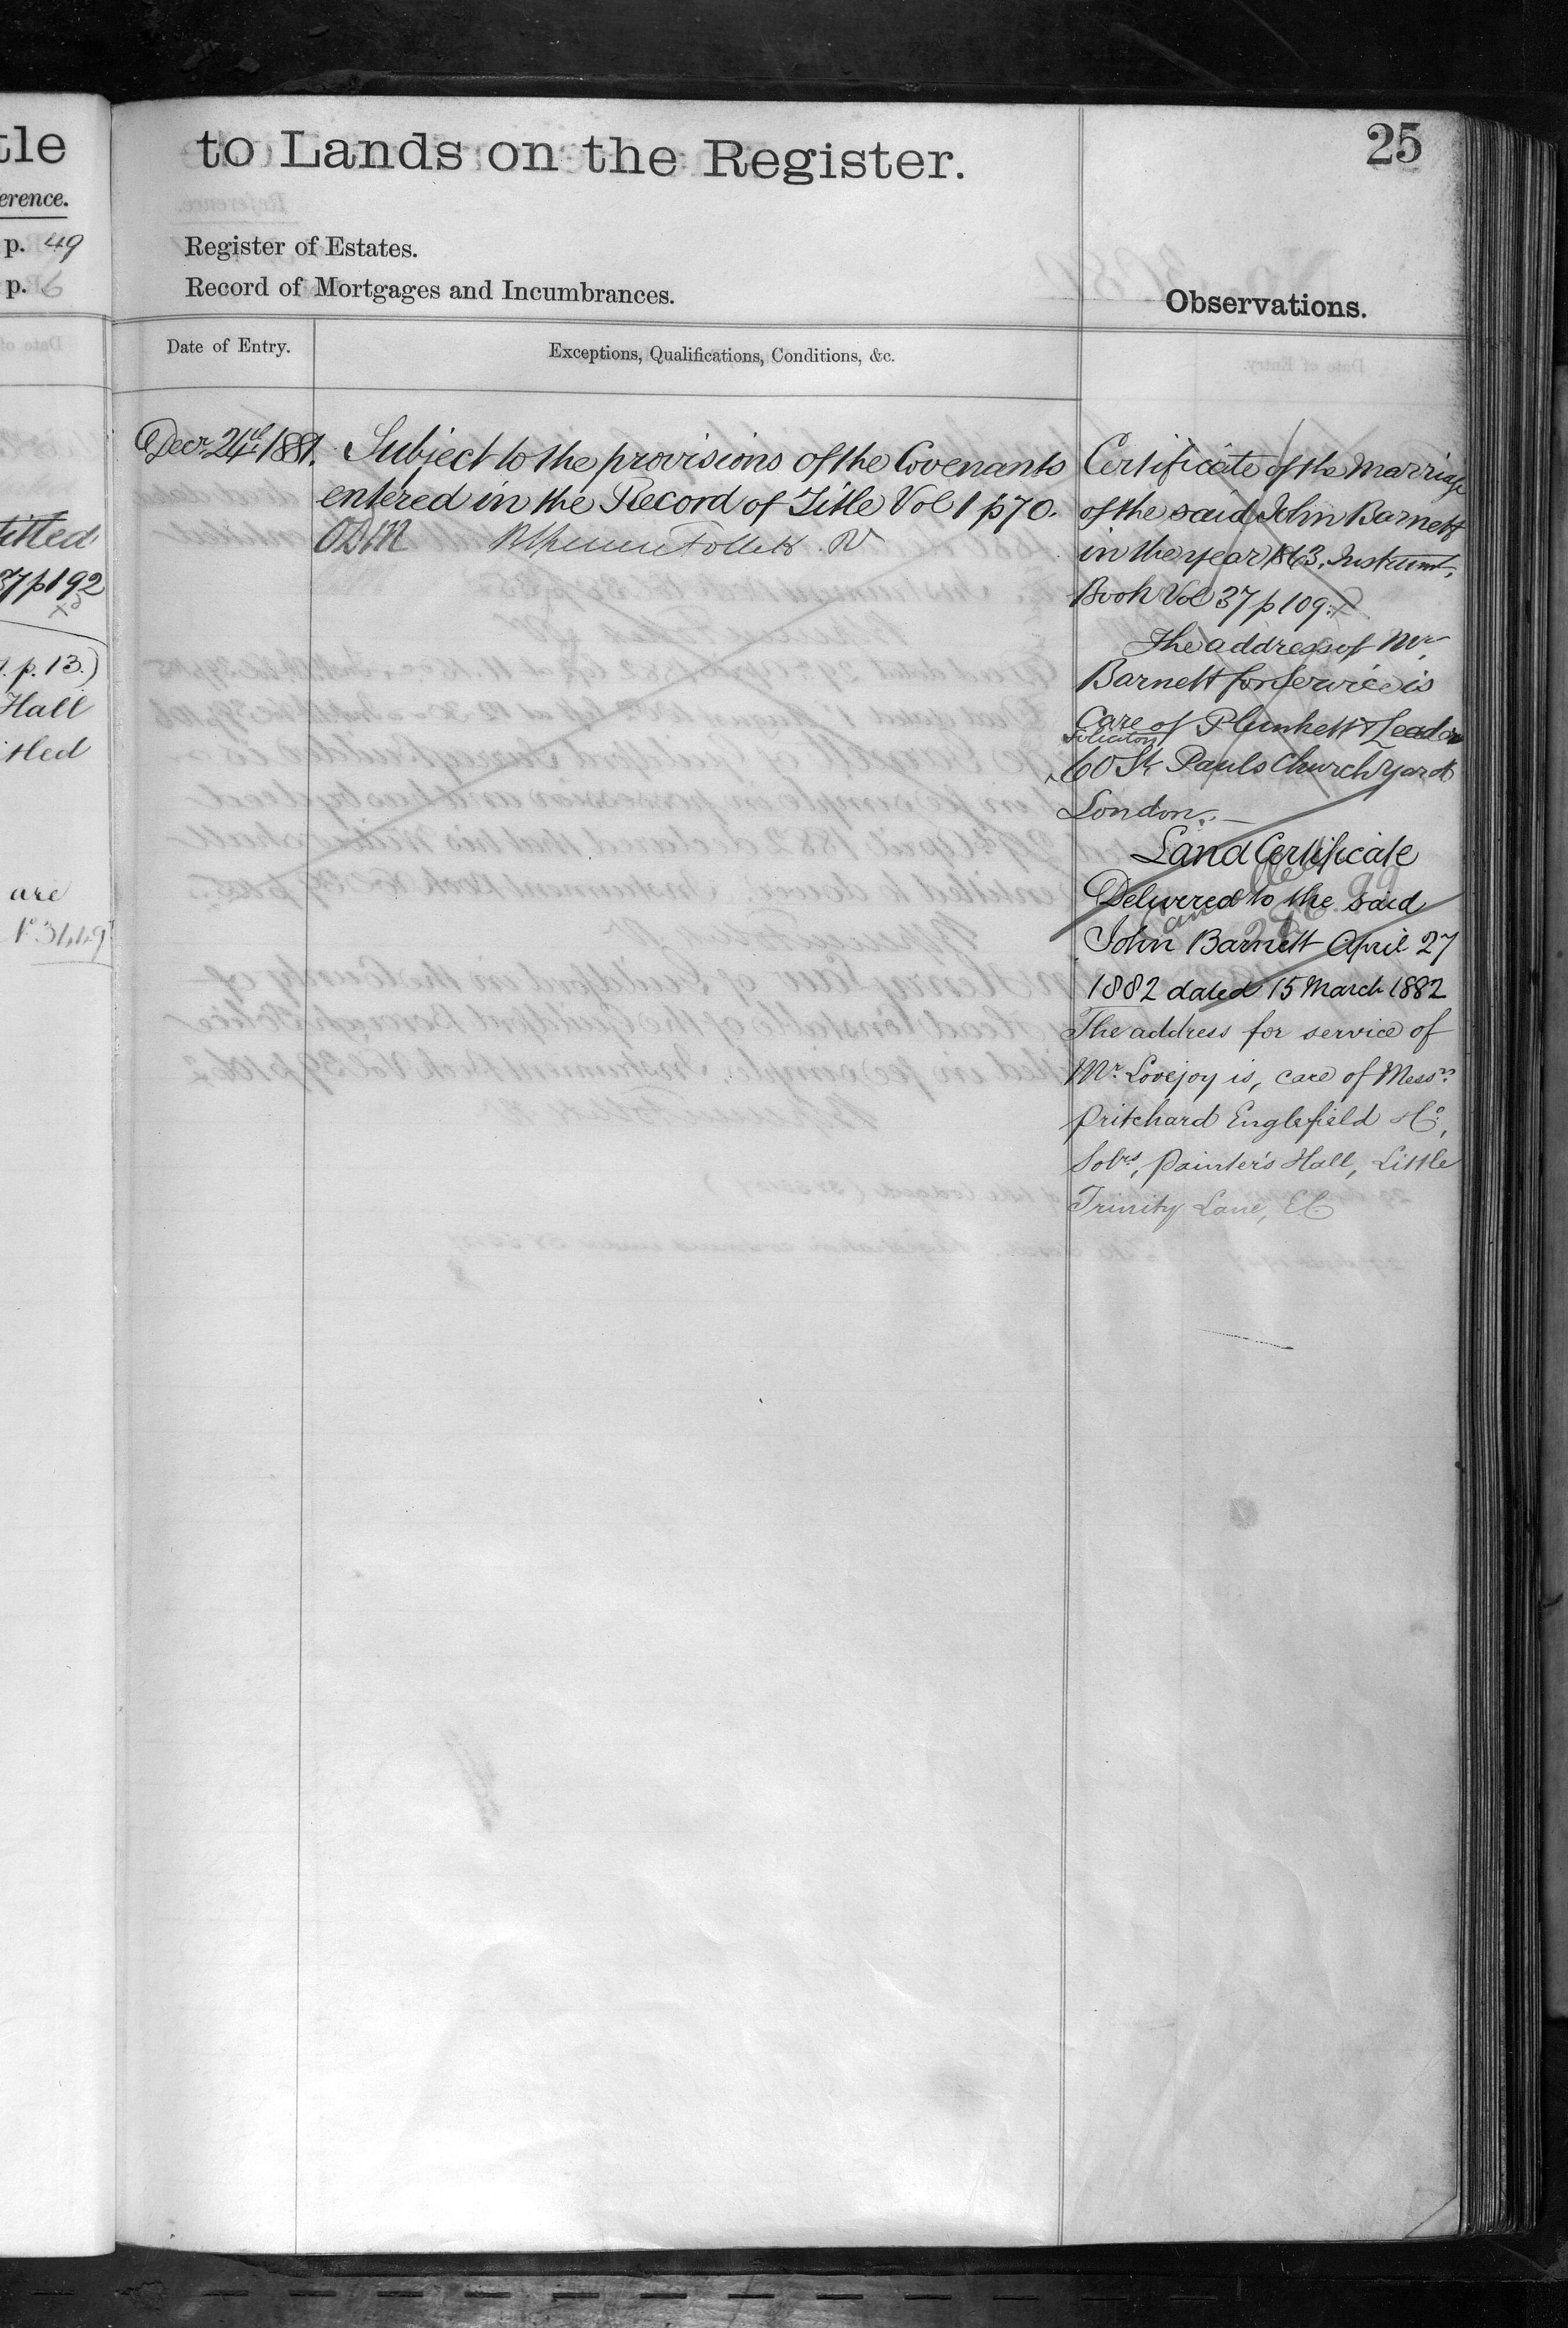 tle
erence.
p. 49
p. 6
titled
37 p 192
. p. 13.)
Hall
itled
are
to Lands on the Register.
25
Register of Estates.
Record of Mortgages and Incumbrances.
Observations.
Date of Entry.
Exceptions, Qualifications, Conditions, &c.
Decr. 1881.
Subject to the provisions of the Covenants
entered in the Record of Title Vol 1 p 70.
ODM Follett
Certificate of the Marriage
of the said John Barnett
in the year 1863. Instrumt.
Book Vol 37 p 109.
The address of Mr.
Barnett for Service is
Care of Plunkett & Leader
Solicitors
60 St. Pauls Church yard
London.
Land Certificate
Delivered to the said
John Barnett April 27
1882 dated 15 March 1882
The address for service of
Mr. Lovejoy is, care of Messrs.
Pritchard Englefield & Co.,
Solrs, Painter's Hall, Little
Trinity Lane, EC